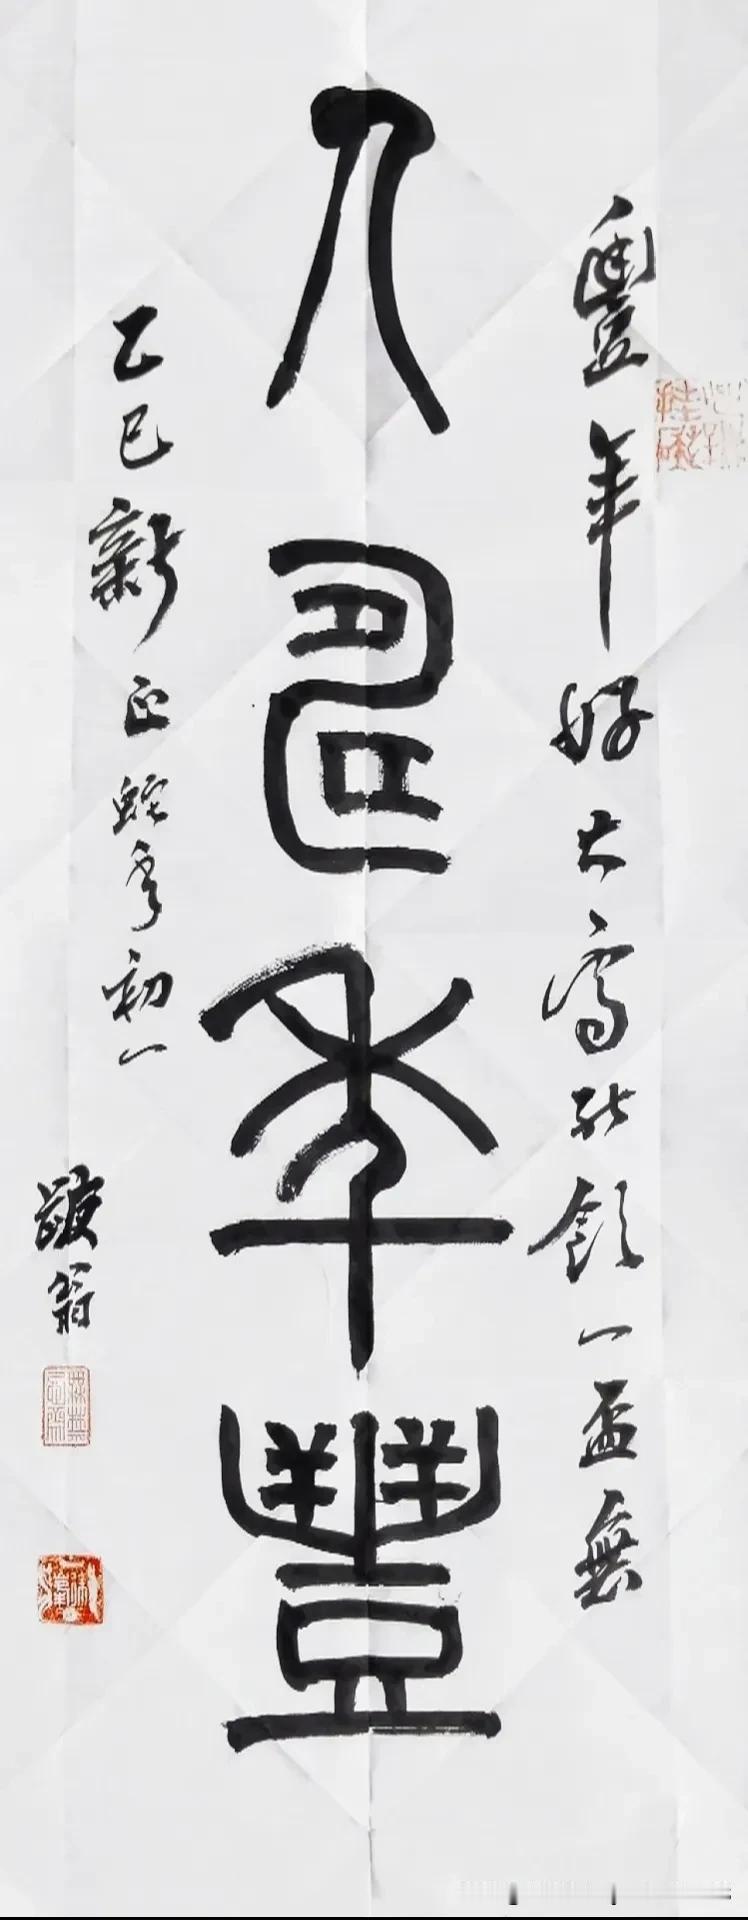 豐年好大雪能飲一盃無
人壽年豐
乙巳新正蛇年初一
翁